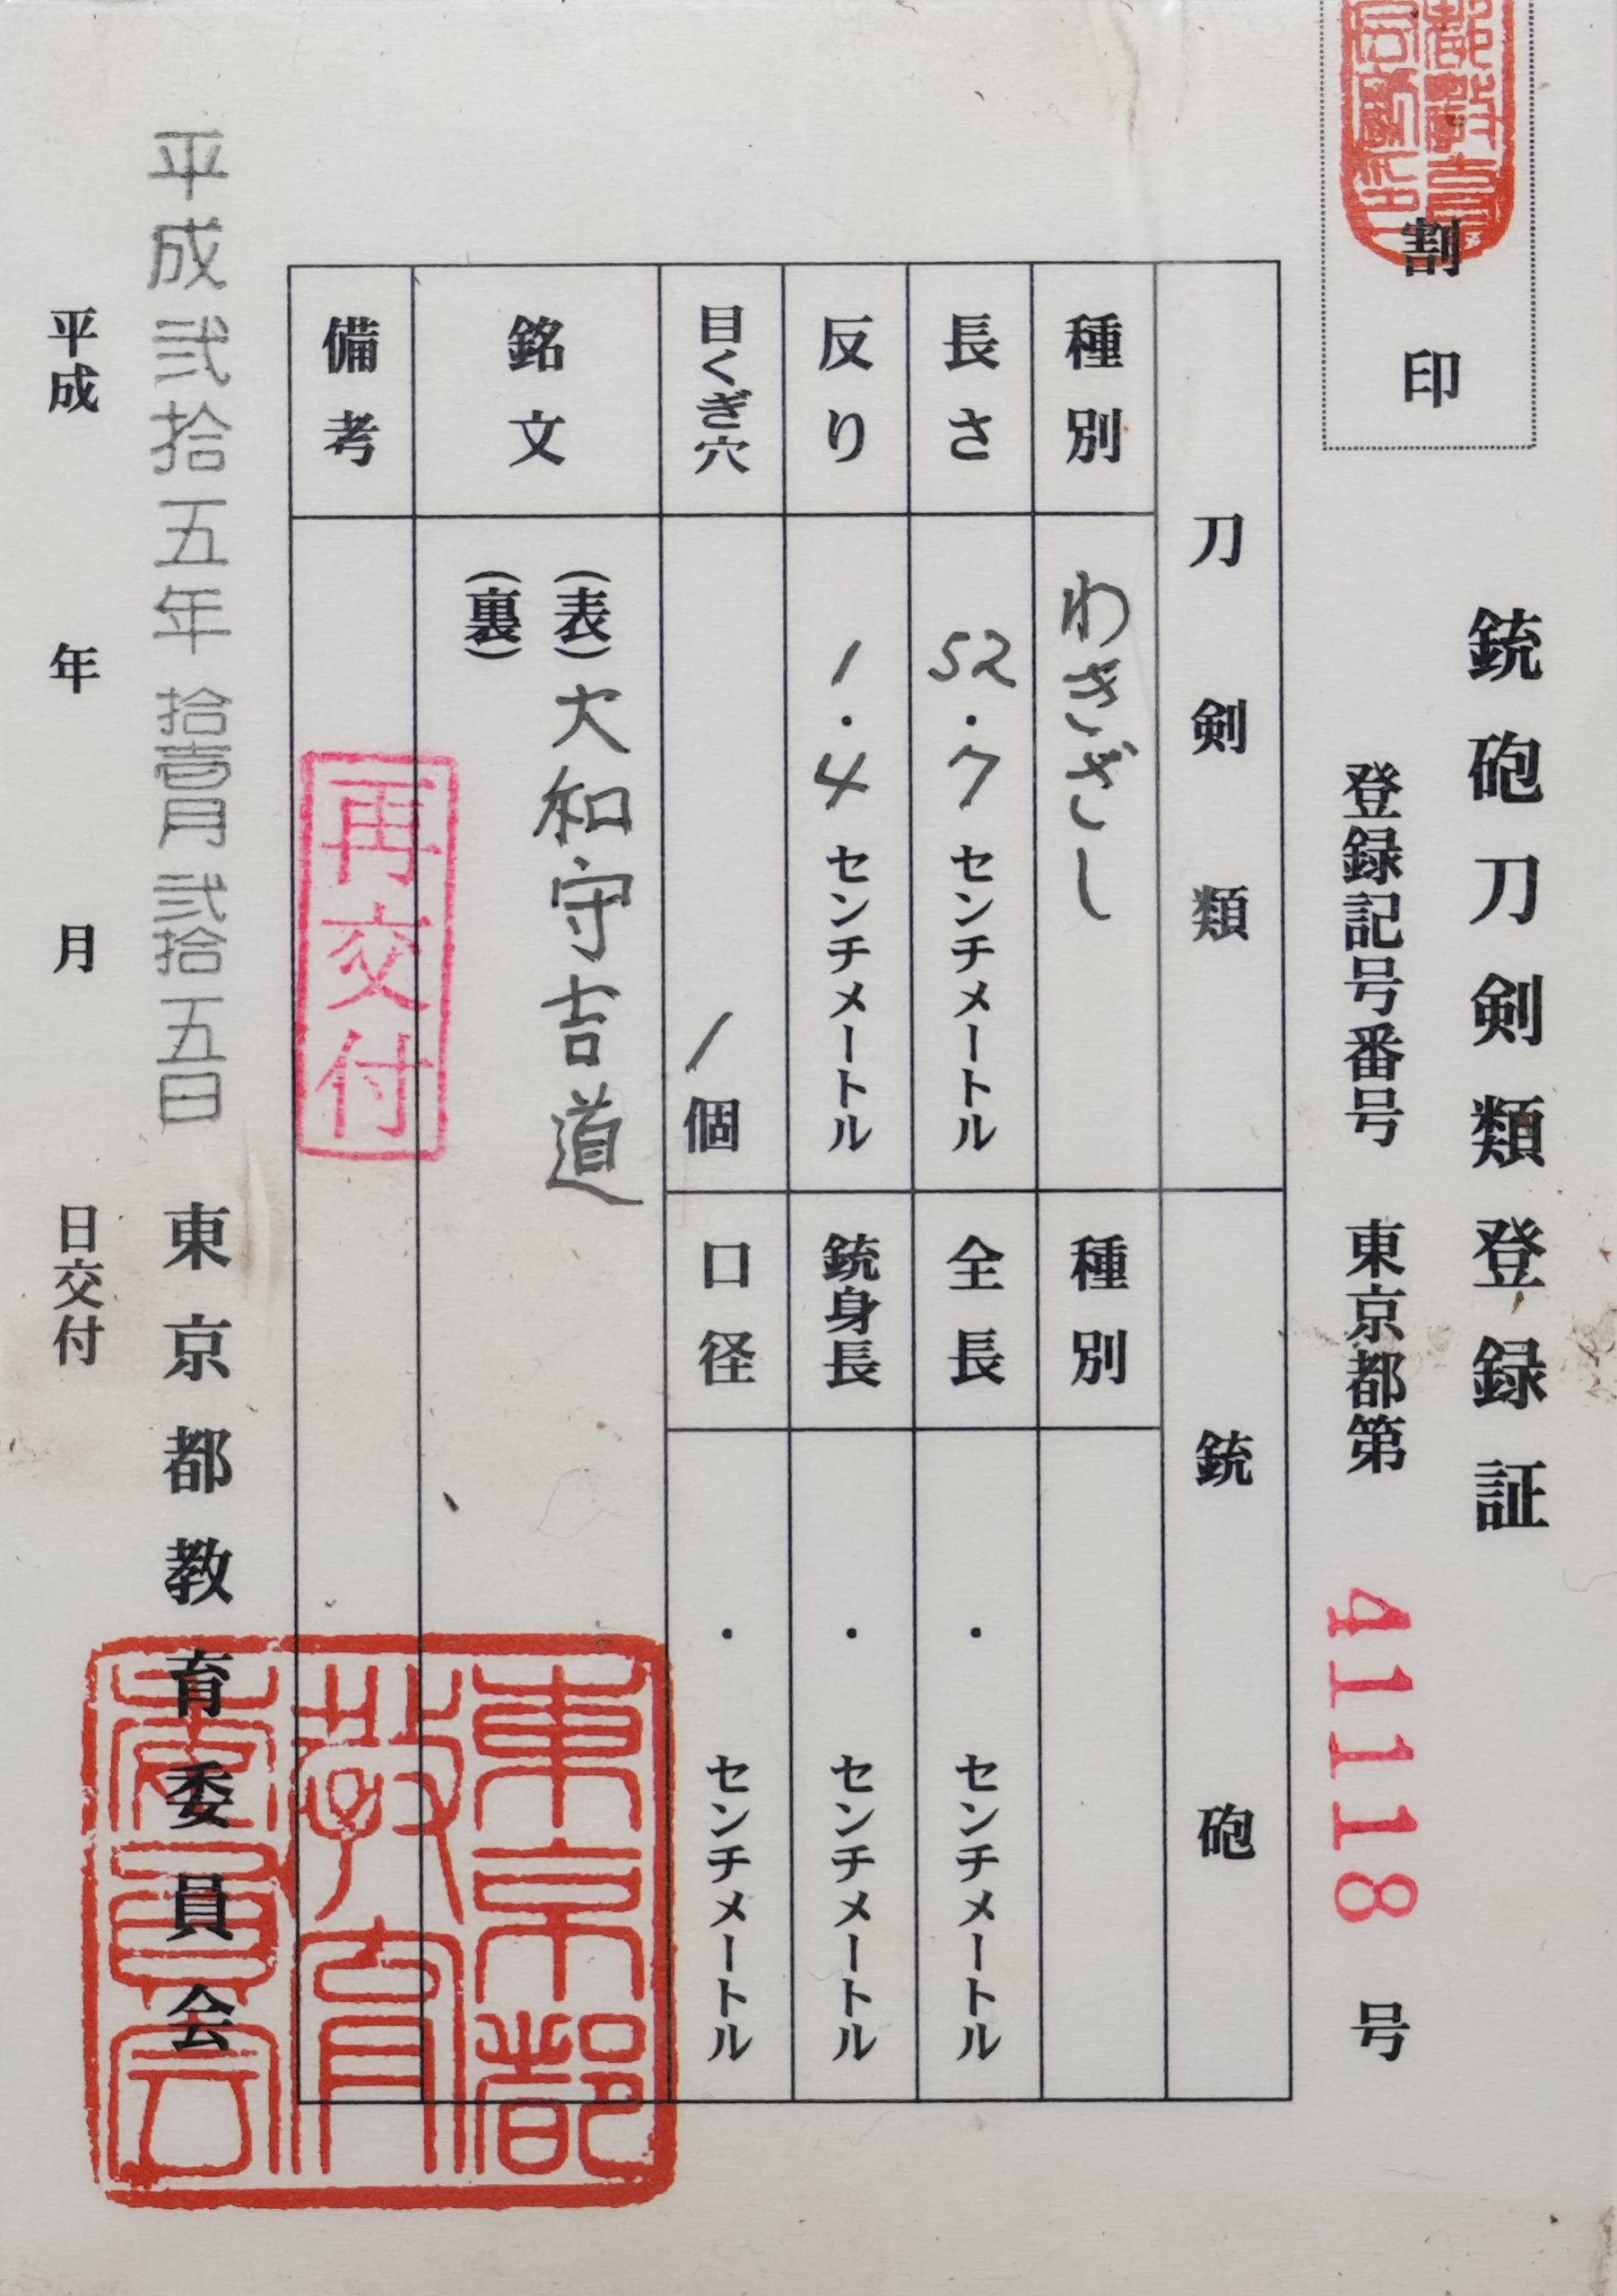 割印
銃砲刀剣類登録証
登録記号番号 東京都第 41118 号
刀剣類
銃砲
種別 わきざし
種別
長さ 52.7 センチメートル
全長 . センチメートル
反り 1.4 センチメートル
銃身長 . センチメートル
目くぎ穴 1 個
口径 . センチメートル
銘文 (表) 大和守吉道
(裏)
備考
再交付
平成弐拾五年拾壹月弐拾五日
東京都教育委員会
東京都
教育
委員会
平成 年 月 日交付